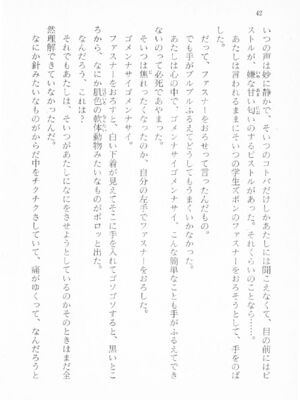 42
いつの声は妙に静かで、そいつのコトバだけしかあたしには聞こえなくて、目の前にはピ
ストルが、嫌な甘い匂いのするピストルがあった。それくらいのことなら……。
あたしは言われるままにそいつの学生ズボンのファスナーをおろそうとして、手をのば
だって、ファスナーをおろせって言ったんだもの。
手がブルブルふるえてどうしてもうまくいかなかった。
あたしは心の中で、ゴメンナサイ、こんな簡単なことも手がふるえてでき
ないので必死であやまった。
ゴメンナサイゴメンナサイ
そいつは焦れったくなったのか、自分の左手でファスナーをおろした。
ファスナーをおろすと、白い下着が見えてそこに手を入れてゴソゴソすると、黒いとこ
ろから、なにか肌色の軟体動物みたいなものがポロッと出た。
なんだろう、これは?
それでもあたしは、そいつがあたしになにをさせようとしているのかそのときはまだ全
然理解できていなかった。
なにか針みたいなものがからだ中をチクチクさしていて、痛がゆくって、なんだろうと